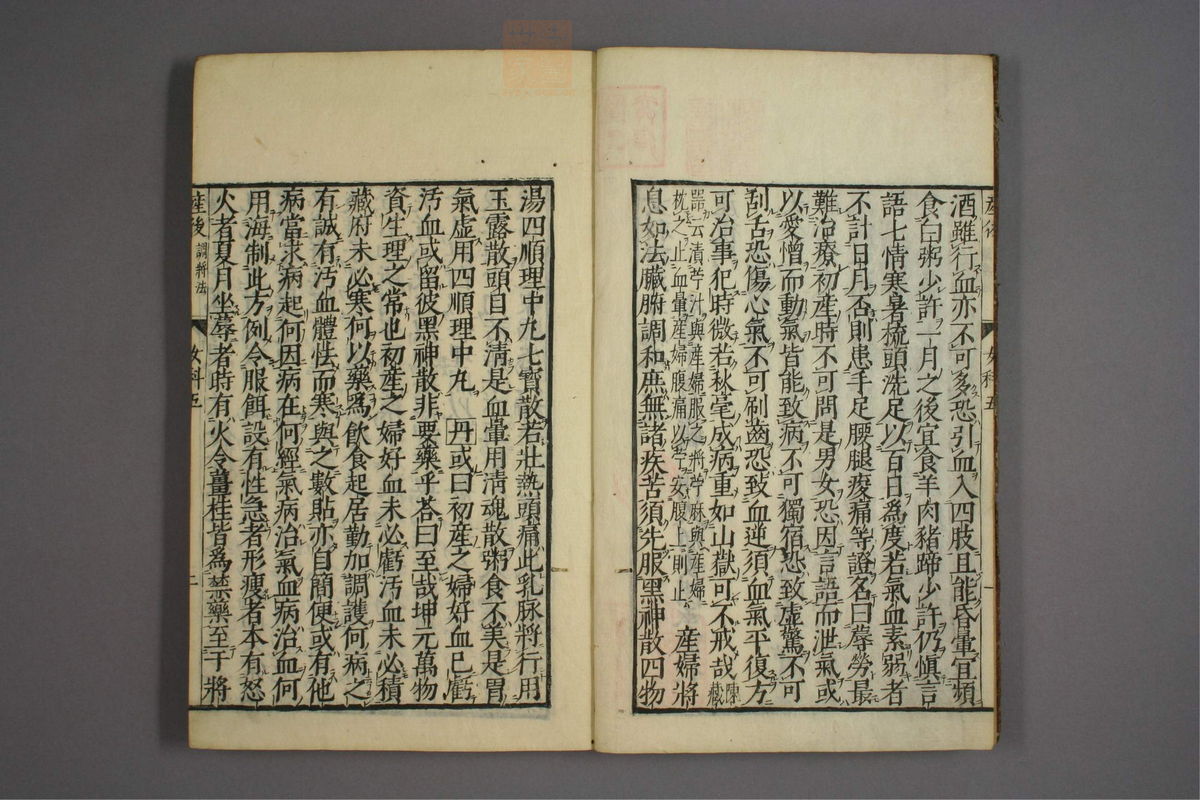 酒雖行血亦不可多恐引血入四肢且能昏暈宜頻
食白粥少許一月之後宜食羊肉豬蹄少許仍愼言
語七情寒暑梳頭洗足以百日爲度若氣血素弱者
不計日月否則患手足腰腿痠痛等證名曰蓐勞最
難治療初產時不可問是男女恐因言語而泄氣或
以愛憎而動氣皆能致病不可獨宿恐致虛驚不可
刮舌恐傷心氣不可刷齒恐致血逆須血氣平復方
可治事犯時微若秋毫成病重如山嶽可不戒哉陳藏
器云漬苧汁與產婦服之將苧麻與產婦
枕之止血暈產婦腹痛以苧安腹上則止
產婦將
息如法臟腑調和庶無諸疾苦須先服黑神散四物
湯四順理中丸七寶散若壯熱頭痛此乳脉將行用
玉露散頭目不淸是血暈用淸魂散粥食不美是胃
氣虛用四順理中丸 丹或曰初產之婦好血已虧
汚血或留彼黑神散非要藥乎荅曰至哉坤元萬物
資生理之常也初產之婦好血未必虧汚血未必積
藏府未必寒何以藥爲飮食起居勤加調護何病之
有誠有汚血體怯而寒與之數貼亦自簡便或有他
病當求病起何因病在何經氣病治氣血病治血何
用海制此方例令服餌設有性急者形瘦者本有怒
火者夏月坐蓐者時有火令薑桂皆爲禁藥至于將
產後 調將法 女科五